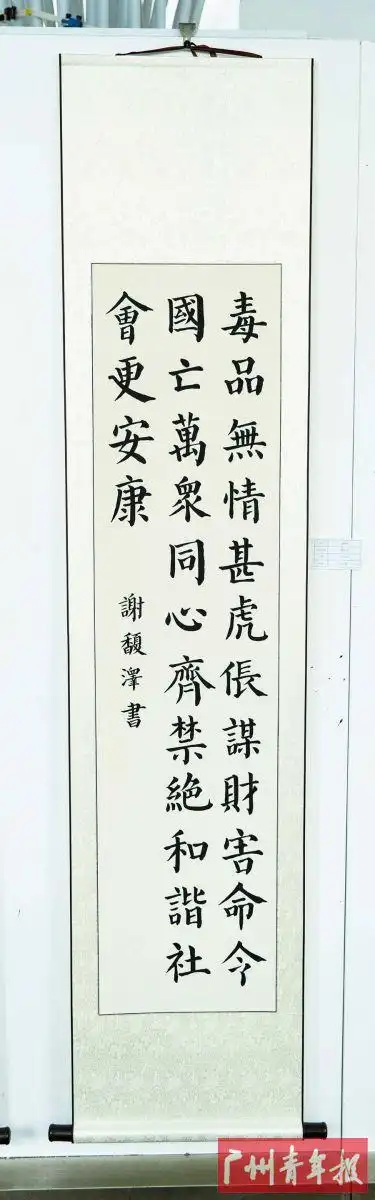 毒品無情甚虎倀謀財害命令
國亡萬衆同心齊禁絶和諧社
會更安康
謝馥澤書
广州青年报